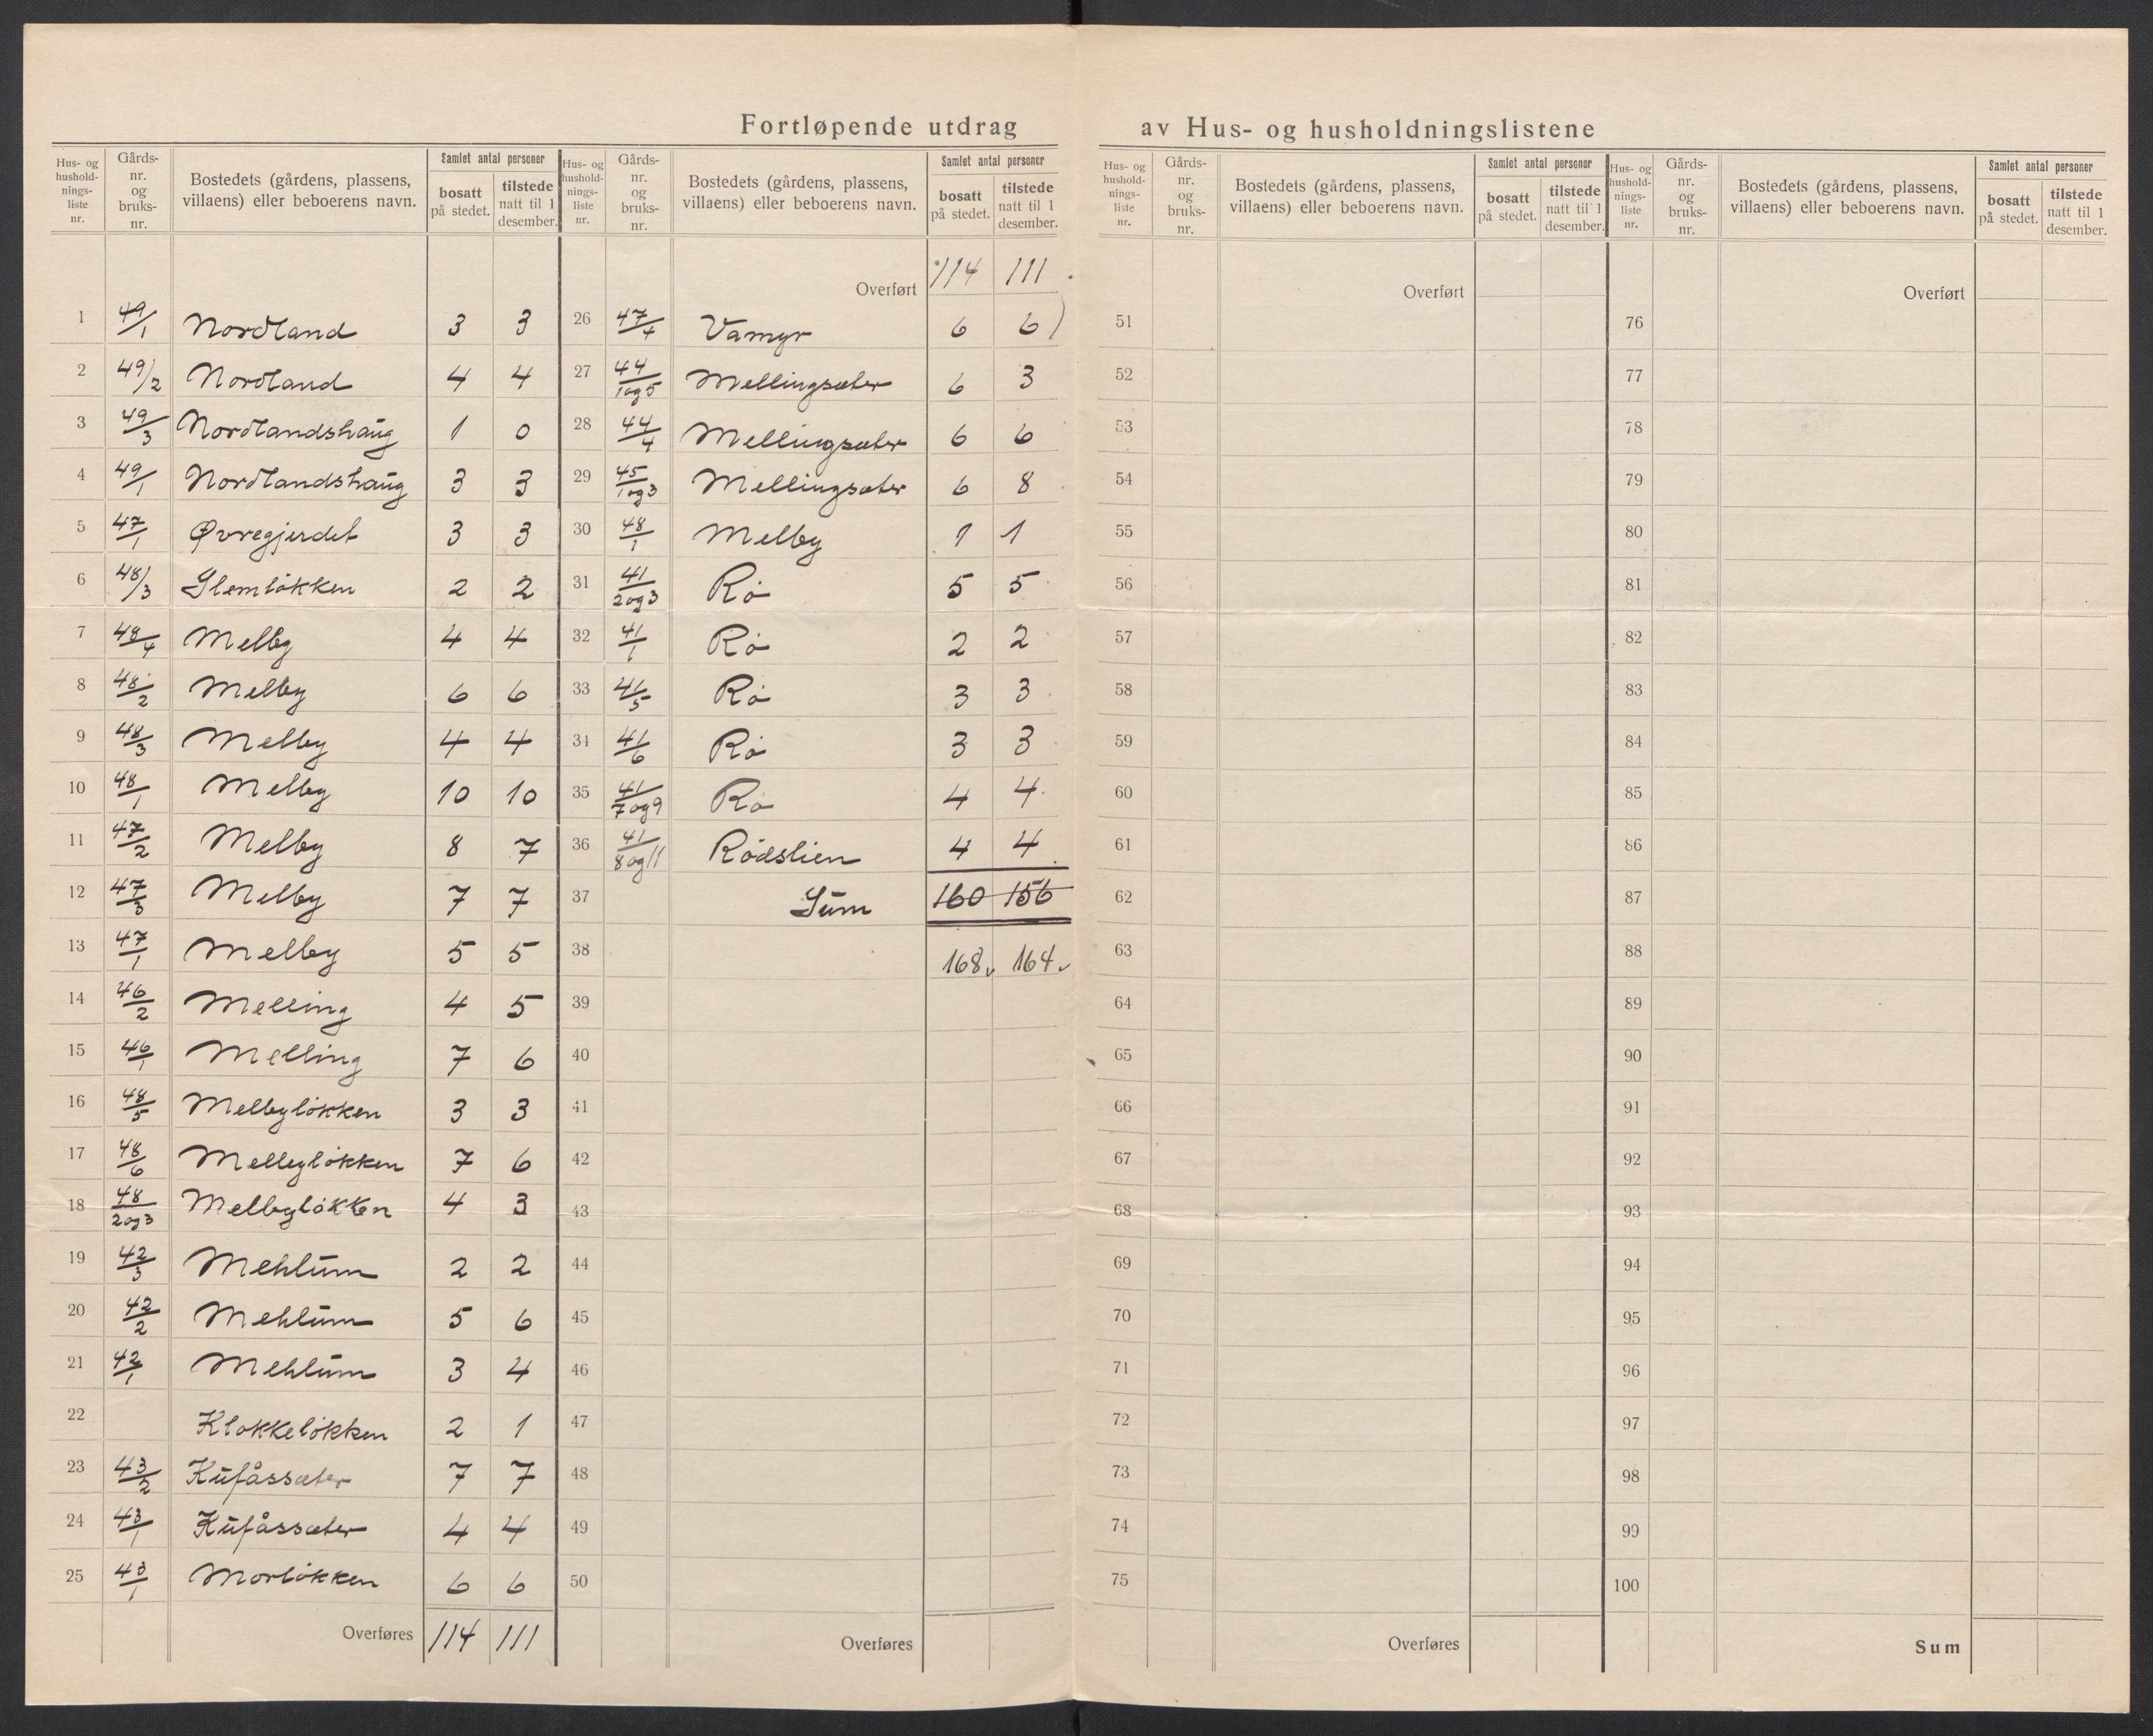 Fortløpende utdrag av Hus- og husholdningslistene
Hus- og hushold- nings- liste nr. | Gårds- nr. og bruks- nr. | Bostedets (gårdens, plassens, villaens) eller beboerens navn. | Samlet antal personer | bosatt på stedet. | tilstede natt til 1 desember.
1 49/1 Nordland 3 3
2 49/2 Nordland 4 4
3 49/3 Nordlandshaug 1 0
4 49/1 Nordlandshaug 3 3
5 47/1 Øvregjerdet 3 3
6 48/3 Slemløkken 2 2
7 48/4 Melby 4 4
8 48/2 Melby 6 6
9 48/3 Melby 4 4
10 48/1 Melby 10 10
11 47/2 Melby 8 7
12 47/3 Melby 7 7
13 47/1 Melby 5 5
14 46/2 Melling 4 5
15 46/1 Melling 7 6
16 48/5 Melbyløkken 3 3
17 48/6 Melbyløkken 7 6
18 48/2og3 Melbyløkken 4 3
19 42/3 Mehlum 2 2
20 42/2 Mehlum 5 6
21 42/1 Mehlum 3 4
22 Klokkeløkken 2 1
23 43/2 Kufåssæter 7 7
24 43/1 Kufåssæter 4 4
25 43/1 Morløkken 6 6
Overføres 114 111
Hus- og hushold- nings- liste nr. | Gårds- nr. og bruks- nr. | Bostedets (gårdens, plassens, villaens) eller beboerens navn. | Samlet antal personer | bosatt på stedet. | tilstede natt til 1 desember.
Overført 114 111
26 47/4 Vamyr 6 6)
27 44/1og5 Mellingsæter 6 3
28 44/4 Mellingsæter 6 6
29 45/1og3 Mellingsæter 6 8
30 48/1 Melby 1 1
31 41/2og3 Rø 5 5
32 41/1 Rø 2 2
33 41/5 Rø 3 3
34 41/6 Rø 3 3
35 41/7og9 Rø 4 4
36 41/8og11 Rødslien 4 4
37 Sum 160 156
38 168 164
39
40
41
42
43
44
45
46
47
48
49
50
Overføres
Hus- og hushold- nings- liste nr. | Gårds- nr. og bruks- nr. | Bostedets (gårdens, plassens, villaens) eller beboerens navn. | Samlet antal personer | bosatt på stedet. | tilstede natt til 1 desember.
Overført
51
52
53
54
55
56
57
58
59
60
61
62
63
64
65
66
67
68
69
70
71
72
73
74
75
Overføres
Hus- og hushold- nings- liste nr. | Gårds- nr. og bruks- nr. | Bostedets (gårdens, plassens, villaens) eller beboerens navn. | Samlet antal personer | bosatt på stedet. | tilstede natt til 1 desember.
Overført
76
77
78
79
80
81
82
83
84
85
86
87
88
89
90
91
92
93
94
95
96
97
98
99
100
Sum